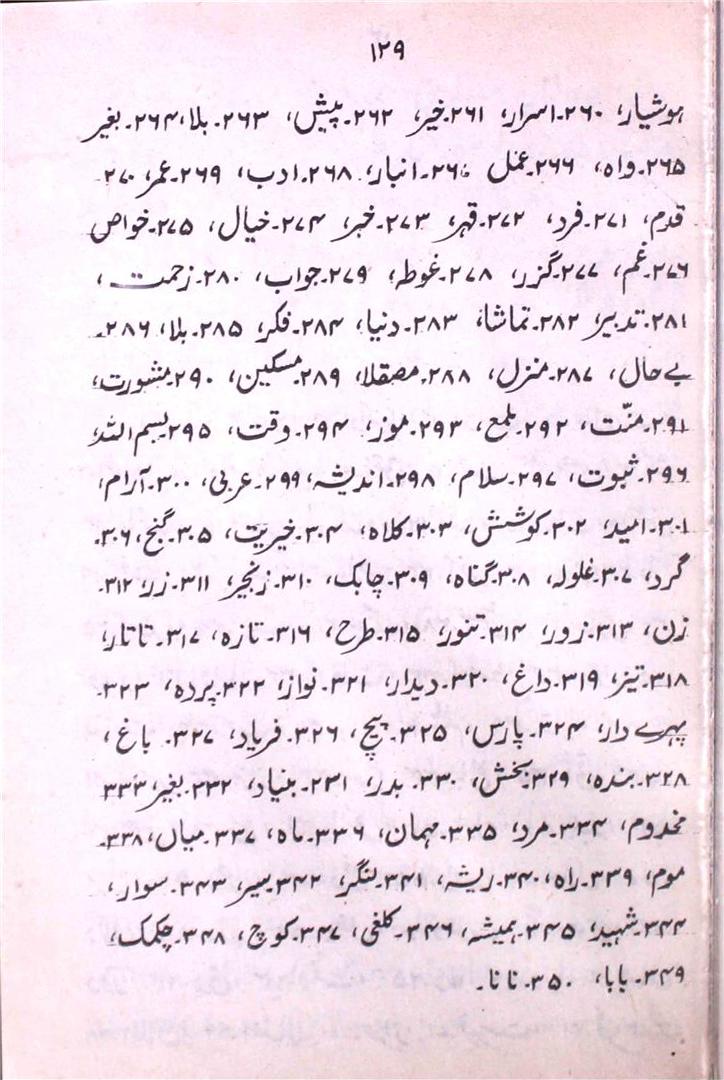 ۱۲۹
ہوشیار، ۲۶۰۔اسرار، ۲۶۱۔خیر، ۲۶۲۔پیش، ۲۶۳۔بلا، ۲۶۴۔بغیر
۲۶۵۔واہ، ۲۶۶۔عمل ۲۶۷۔انبار، ۲۶۸۔ادب، ۲۶۹۔عمر، ۲۷۰۔
قدم، ۲۷۱۔فرد، ۲۷۲۔قہر، ۲۷۳۔خبر، ۲۷۴۔خیال، ۲۷۵۔خواص
۲۷۶۔غم، ۲۷۷۔گزر، ۲۷۸۔غوطہ، ۲۷۹۔جواب، ۲۸۰۔زحمت،
۲۸۱۔تدبیر، ۲۸۲۔تماشا، ۲۸۳۔دنیا، ۲۸۴۔فکر، ۲۸۵۔بلا، ۲۸۶۔
بے حال، ۲۸۷۔منزل، ۲۸۸۔مصقلا، ۲۸۹۔مسکین، ۲۹۰۔مشورت،
۲۹۱۔منّت، ۲۹۲۔بلمع، ۲۹۳۔موز، ۲۹۴۔وقت، ۲۹۵۔بسم اللہ،
۲۹۶۔ثبوت، ۲۹۷۔سلام، ۲۹۸۔اندیشہ، ۲۹۹۔عربی، ۳۰۰۔آرام،
۳۰۱۔امید، ۳۰۲۔کوشش، ۳۰۳۔کلاہ، ۳۰۴۔خیریت، ۳۰۵۔گنج، ۳۰۶۔
گرد، ۳۰۷۔غلولہ، ۳۰۸۔گناہ، ۳۰۹۔چابک، ۳۱۰۔زنجیر، ۳۱۱۔زر، ۳۱۲۔
زن، ۳۱۳۔زور، ۳۱۴۔تنور، ۳۱۵۔طرح، ۳۱۶۔تازہ، ۳۱۷۔تاتار،
۳۱۸۔تیز، ۳۱۹۔داغ، ۳۲۰۔دیدار، ۳۲۱۔نواز، ۳۲۲۔پردہ، ۳۲۳۔
پہرے دار، ۳۲۴۔پارس، ۳۲۵۔پیچ، ۳۲۶۔فریاد، ۳۲۷۔باغ،
۳۲۸۔بندہ، ۳۲۹۔بخش، ۳۳۰۔بدر، ۲۳۱۔بنیاد، ۲۳۲۔بغیر، ۳۳۳
مخدوم، ۳۳۴۔مرد، ۳۳۵۔مہمان، ۳۳۶۔ماہ، ۳۳۷۔میاں، ۳۳۸۔
موم، ۳۳۹۔راہ، ۳۴۰۔ریشہ، ۳۴۱۔لنگر، ۳۴۲۔سیر، ۳۴۳۔سوار،
۳۴۴۔شہید، ۳۴۵۔ہمیشہ، ۳۴۶۔کلغی، ۳۴۷۔کوچ، ۳۴۸۔چکمک،
۳۴۹۔بابا، ۳۵۰۔نانا۔